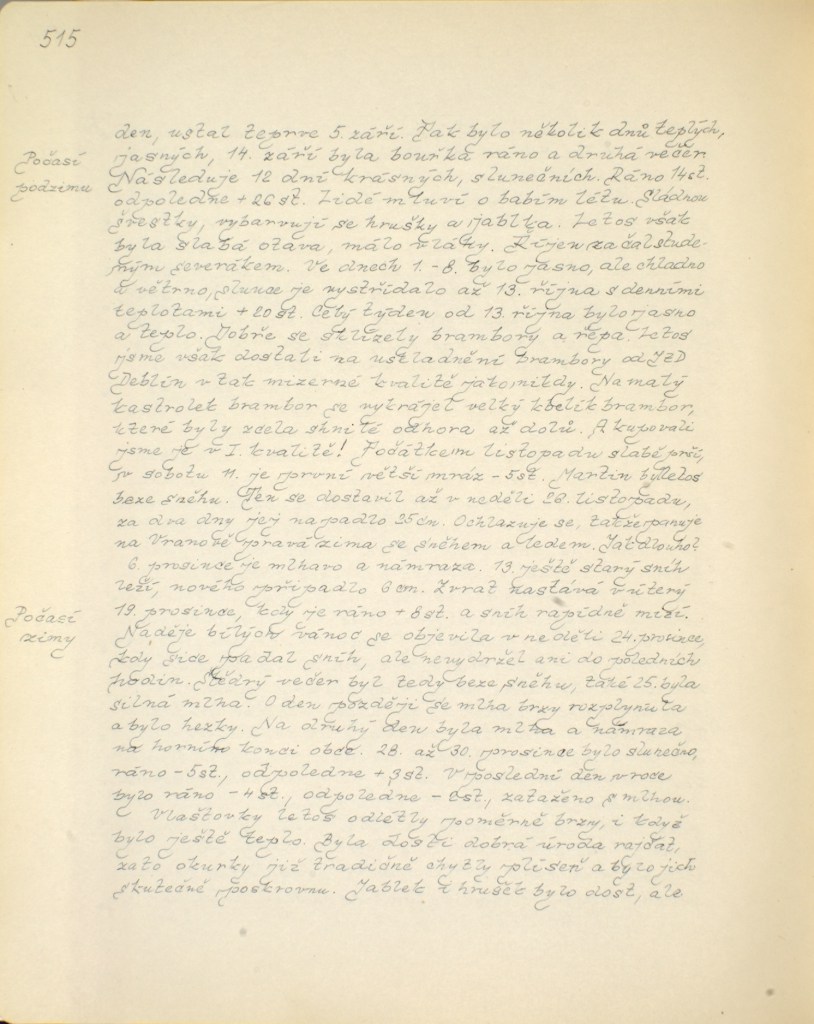 515
den, ustal teprve 5. září. Pak bylo několik dnů teplých,
Počasí
podzimu
jasných, 14. září byla bouřka ráno a druhá večer.
Následuje 12 dní krásných, slunečních. Ráno 14 st.
odpoledne + 26 st. Lidé mluví o babím létu. Sládnou
švestky, vybarvují se hrušky a jablka. Letos však
byla slabá otava, málo vláhy. Říjen začal stude-
ným severákem. Ve dnech 1. - 8. bylo jasno, ale chladno
a větrno, slunce je vystřídalo až 13. října s denními
teplotami + 20 st. Celý týden od 13. října bylo jasno
a teplo. Dobře se sklízely brambory a řepa. Letos
jsme však dostali na uskladnění brambory od JZD
Deblín v tak mizerné kvalitě jako nikdy. Na malý
kastrolek brambor se vykrájel velký kbelík brambor,
které byly zcela shnilé odhora až dolů. A kupovali
jsme je v I. kvalitě! Počátkem listopadu slabě prší,
v sobotu 11. je první větší mráz - 5 st. Martin byl letos
beze sněhu. Ten se dostavil až v neděli 26. listopadu,
za dva dny jej napadlo 25 cm. Ochlazuje se, takže panuje
na Vranově pravá zima se sněhem a ledem. Jak dlouho?
6. prosince je mlhavo a námraza. 13. ještě starý sníh
leží, nového připadlo 6 cm. Zvrat nastává v úterý
Počasí
zimy
19. prosince, kdy je ráno + 8 st. a sníh rapidně mizí.
Naděje bílých vánoc se objevila v neděli 24. prosince,
kdy sice padal sníh, ale nevydržel ani do poledních
hodin. Štědrý večer byl tedy beze sněhu, také 25. byla
silná mlha. O den později se mlha brzy rozplynula
a bylo hezky. Na druhý den byla mlha a námraza
na horním konci obce. 28. až 30. prosince bylo slunečno,
ráno - 5 st., odpoledne + 3 st. V poslední den v roce
bylo ráno - 4 st., odpoledne - st., zataženo s mlhou.
Vlaštovky letos odlétly poměrně brzy, i když
bylo ještě teplo. Byla dosti dobrá úroda rajčat,
zato okurky již tradičně chytly plíseň a bylo jich
skutečně poskrovnu. Jablek i hrušek bylo dost, ale